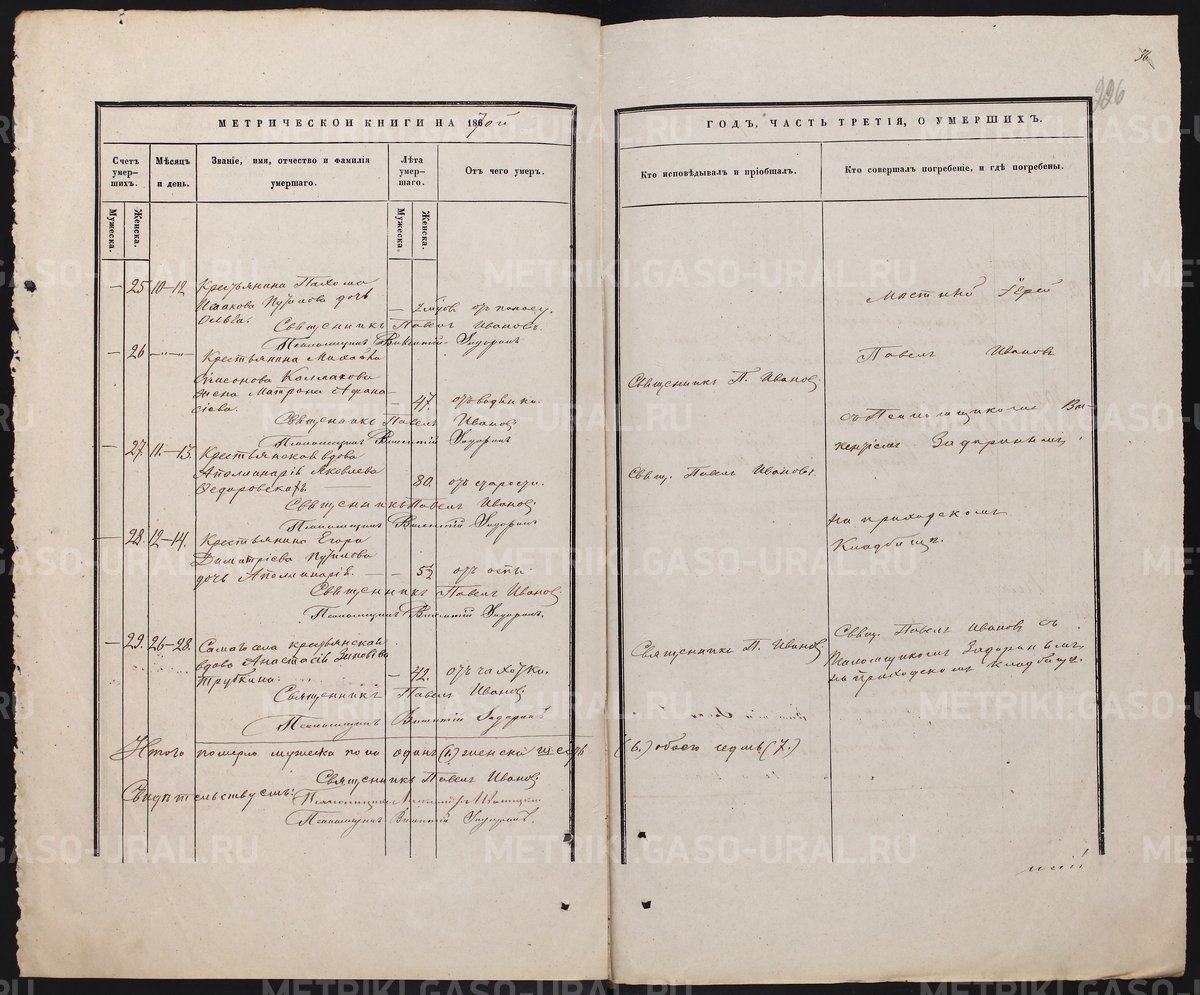 МЕТРИЧЕСКОЙ КНИГИ НА 1870й
Счетъ умер-шихъ.
Мужеска.
Женска.
Мѣсяцъ и день.
Званіе, имя, отчество и фамилія умершаго.
Лѣта умер-шаго.
Мужеска.
Женска.
Отъ чего умеръ.
— 25 10—12 Крестьянина Пахома
Исакова Пузилова дочь
Ольга. —
Священникъ Павелъ Ивановъ.
Псаломщикъ Викентій Задоринъ
— 26 —„—„— Крестьянина Михаила
Симеонова Колмакова
жена Матрона Афана-
сіева. — 47. отъ водянки.
Священникъ Павелъ Ивановъ
Псаломщикъ Викентій Задоринъ
— 27. 11—13. Крестьянская вдова
Аполлинарія Яковлева
— 80. отъ старости.
Священникъ Павелъ Ивановъ
Псаломщикъ Викентій Задоринъ
— 28. 12—14. Крестьянина Егора
Димитріева Пузилова
дочь Аполлинарія. — отъ оспы.
Священникъ Павелъ Ивановъ.
Псаломщикъ Викентій Задоринъ.
— 29. 26—28. Тагожъ села крестьянская
вдова Анастасія Зиновіева
Трубкина. — 42. отъ чахотки.
Священникъ Павелъ Ивановъ
Псаломщикъ Викентій Задоринъ
Итого померло мужеска пола одинъ (1.) женска шесть
Священникъ Павелъ Ивановъ
Свидѣтельствуемъ:
Псаломщикъ
Псаломщикъ Викентій Задоринъ.
226
ГОДЪ, ЧАСТЬ ТРЕТІЯ, О УМЕРШИХЪ.
Кто исповѣдывалъ и пріобщалъ.
Кто совершалъ погребеніе, и гдѣ погребены.
Мѣстный Іерей
Павелъ Ивановъ
Священникъ П. Ивановъ
съ Псаломщикомъ Ви-
кентіемъ Задоринымъ
Свящ. Павелъ Ивановъ.
на приходскомъ
Кладбищѣ.
Свящ. Павелъ Ивановъ съ
Священникъ П. Ивановъ.
Псаломщикомъ Задоринымъ
на приходскомъ кладбищѣ.
(6.) обоего седмь (7.)
METRIKI.GASO-URAL.RU